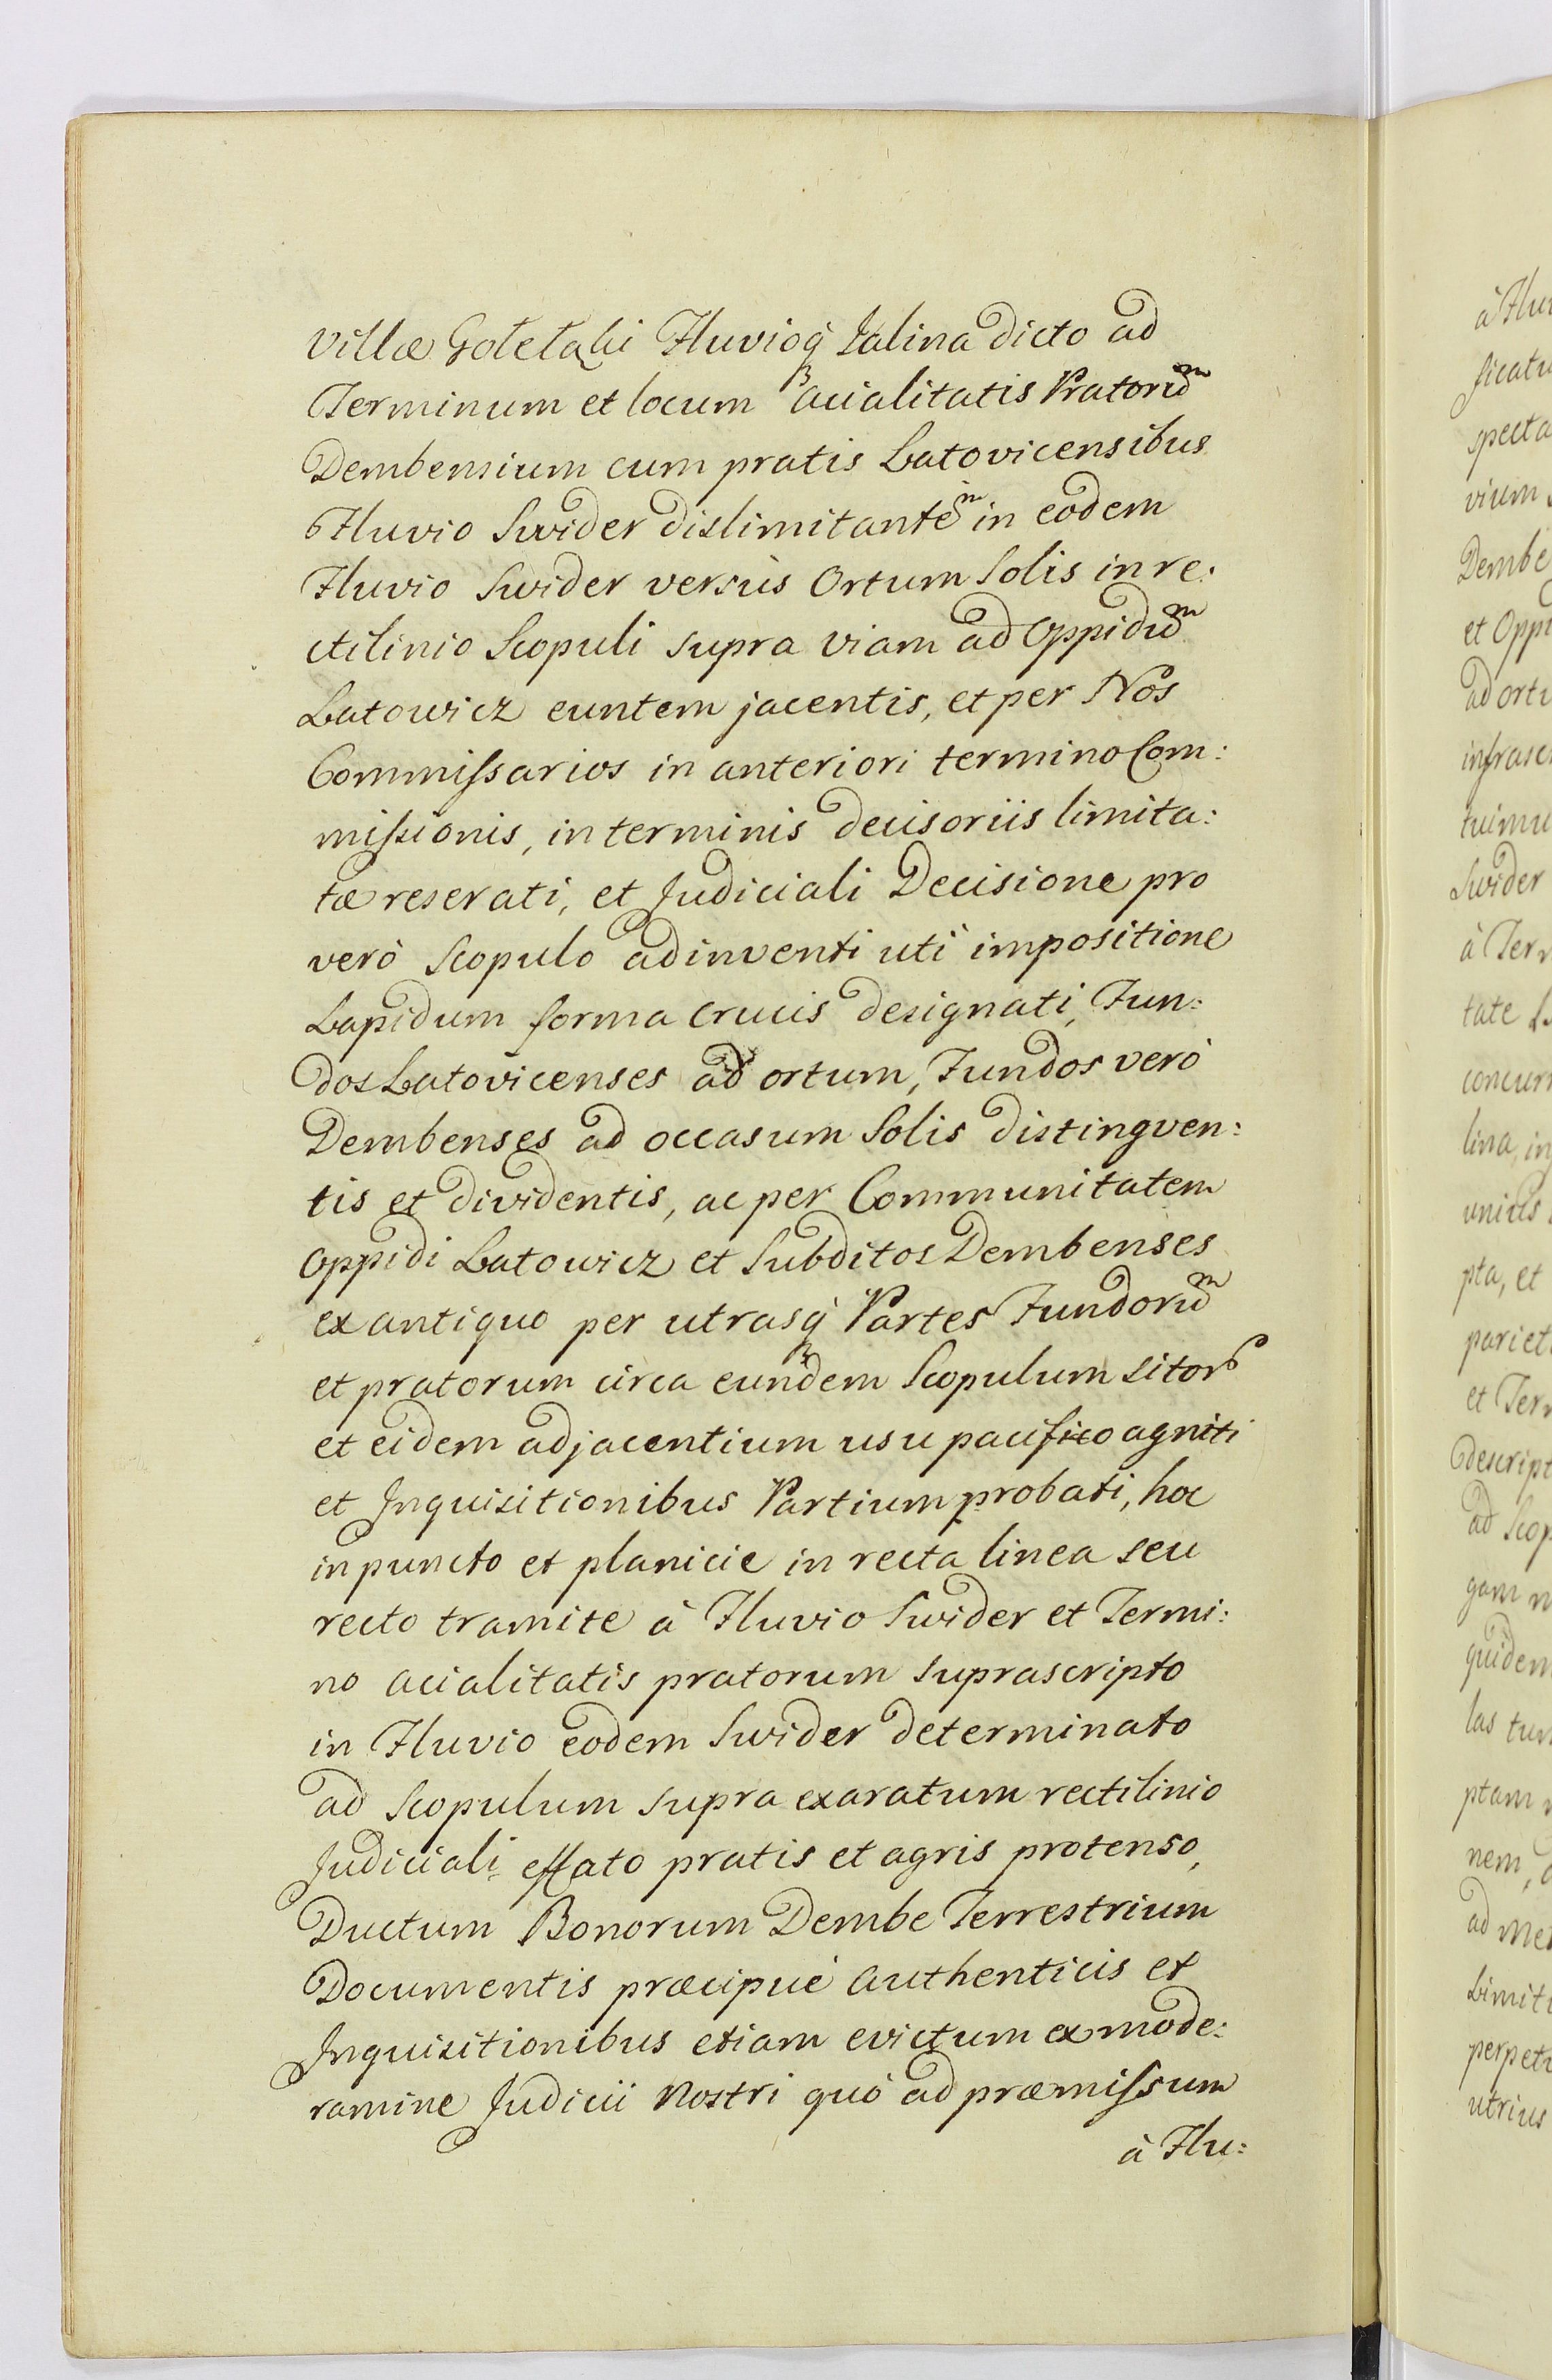 Villæ Goletaki Fluvioq̃ Jalina dicto ad
Terminum et locum acialitatis Pratorum̃
Dembensium cum pratis Latovicensibus
Fluvio Swider dislimitantem̃ in eodem
Fluvio Swider versùs Ortum Solis in re:
ctilinio Scopuli supra viam ad Oppidum̃
Latowicz euntem jacentis, et per Nos
Commiſsarios in anteriori termino Com:
miſsionis, in terminis decisoriis limita:
tæ reserati, et Judiciali Decisione pro
verò Scopulo adinventi uti impositione
Lapidum forma Crucis designati, Fun:
dos Latovicenses ad ortum, Fundos verò
Dembenses ad occasum Solis distingven:
tis et dividentis, ac per Communitatem
Oppidi Latowicz et Subditos Dembenses
ex antiquo per utrasq̃ Partes Fundorum̃
et pratorum circa eundem Scopulum sitor
et eidem adjacentium usu pacifico agniti
et Inquisitionibus Partium probati, hoc
in puncto et planicie in recta linea seu
recto tramite à Fluvio Swider et Termi:
no acialitatis pratorum suprascripto
in Fluvio eodem Swider determinato
ad Scopulum supra exaratum rectilinio
Judiciali effato pratis et agris protenso,
Ductum Bonorum Dembe Terrestrium
Documentis præcipuè Authenticis et
Inquisitionibus etiam evictum ex mode:
ramine Judicii Nostri quò ad præmiſsum
à Flu:
à Flu
ficatu
specta
vium
Dembe
et Oppi
ad ortu
infrasc
tuimu
Swider
à Ter
tate
concurr
lina, in
unius
pta, et
pariet
et Ter
descript
ad Scop
gam
quidem
las tum
ptam
nem,
ad Me
Limit
perpet
utrius